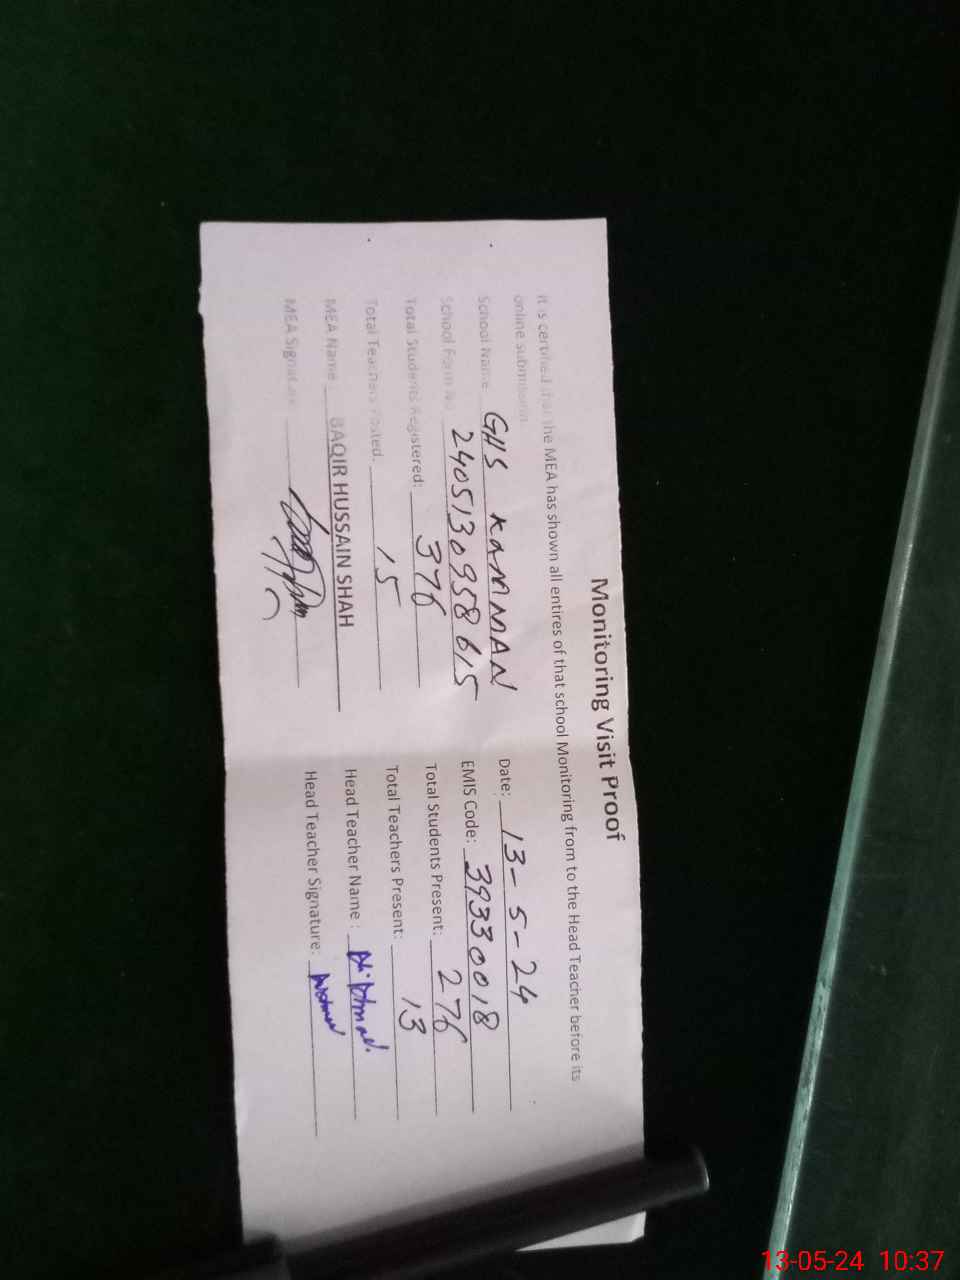 Monitoring Visit Proof
It is certified that the MEA has shown all entires of that school Monitoring from to the Head Teacher before its
online submission
School Name GHS KAMMAN Date: 13-5-24
School Form No 2405130958615 EMIS Code: 39330018
Total Students Registered: 376 Total Students Present: 276
Total Teachers Posted: 15 Total Teachers Present: 13
MEA Name BAQIR HUSSAIN SHAH Head Teacher Name :
MEA Signature Head Teacher Signature:
13-05-24 10:37